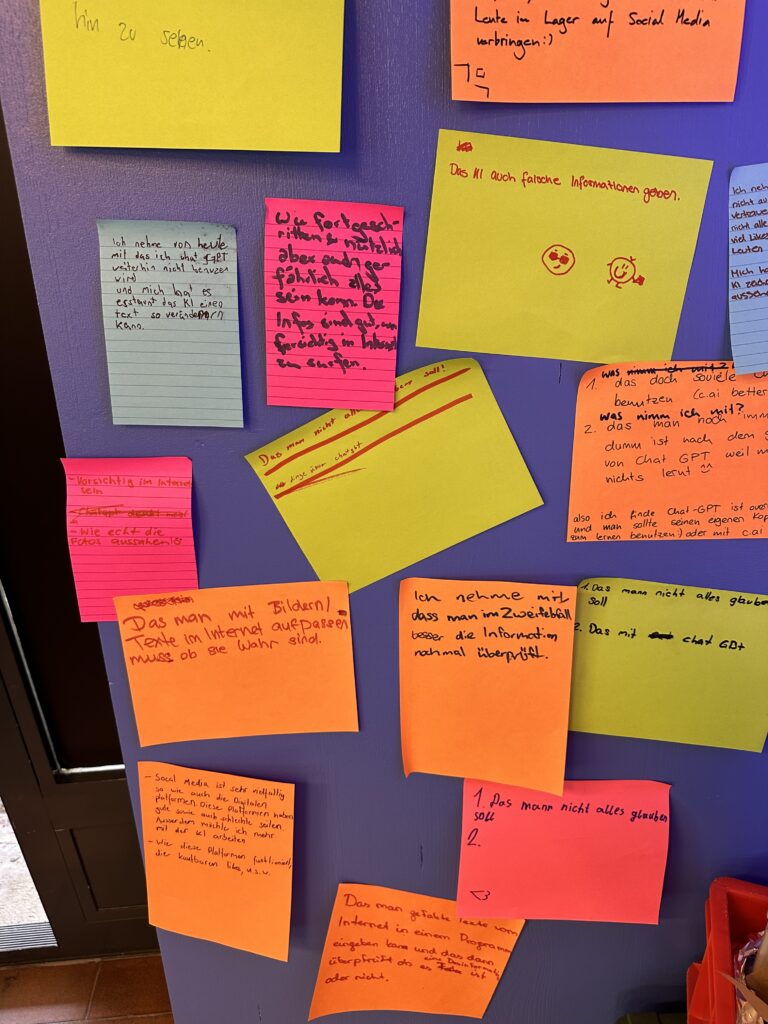 hin zu sehen.
Leute im Lager auf Social Media
verbringen:)
Das KI auch falsche Informationen geben.
Ich neh
nicht au
vertraue
nicht alle
viel Likes
Leuten
Mich ha
KI zeich
aussehe
Ich nehme von heute
mit das ich chat gpt
weiterhin nicht benuzen
wird
und mich hat es
erstaunt das KI einen
text so verändern
kann.
Wie fortgesch-
ritten & nützlich
aber auch ge
fährlich alles
sein kann. Die
Infos sind gut, um
forsichtig im Internet
zu surfen.
Das man nicht alles
soll!
chatgbt
was nimm ich mit?
1. das doch soviele
benutzen (c.ai better
was nimm ich mit?
2. das man noch imm
dumm ist nach dem g
von Chat GPT weil m
nichts lernt
also ich finde Chat-GPT ist over
und man sollte seinen eigenen Kop
zum lernen benutzen) oder mit c.ai
- Vorsichtig im Internet
sein
- Chatgpt
- Wie echt die
Fotos aussehen
Das man mit Bildern/
Texte im Internet aufpassen
muss ob sie Wahr sind.
Ich nehme mit
dass man im Zweifelsfall
besser die Information
nochmal überprüft.
1. Das mann nicht alles glauben
soll
2. Das mit chat GDt
- Social Media ist sehr vielfältig
so wie auch die Digitalen
platformen. Diese Platformen haben
gute sowie auch schlechte seiten.
Ausserdem möchte ich mehr
mit der KI arbeiten
- Wie diese Platformen funktionieren,
die kaufbaren likes, u.s.w.
1. Das mann nicht alles glauben
soll
2.
<3
Das man gefakte Texte vom
Internet in einem Programm
eingeben kann und das dann
überprüft ob es eine Desinformation
ist
oder nicht.